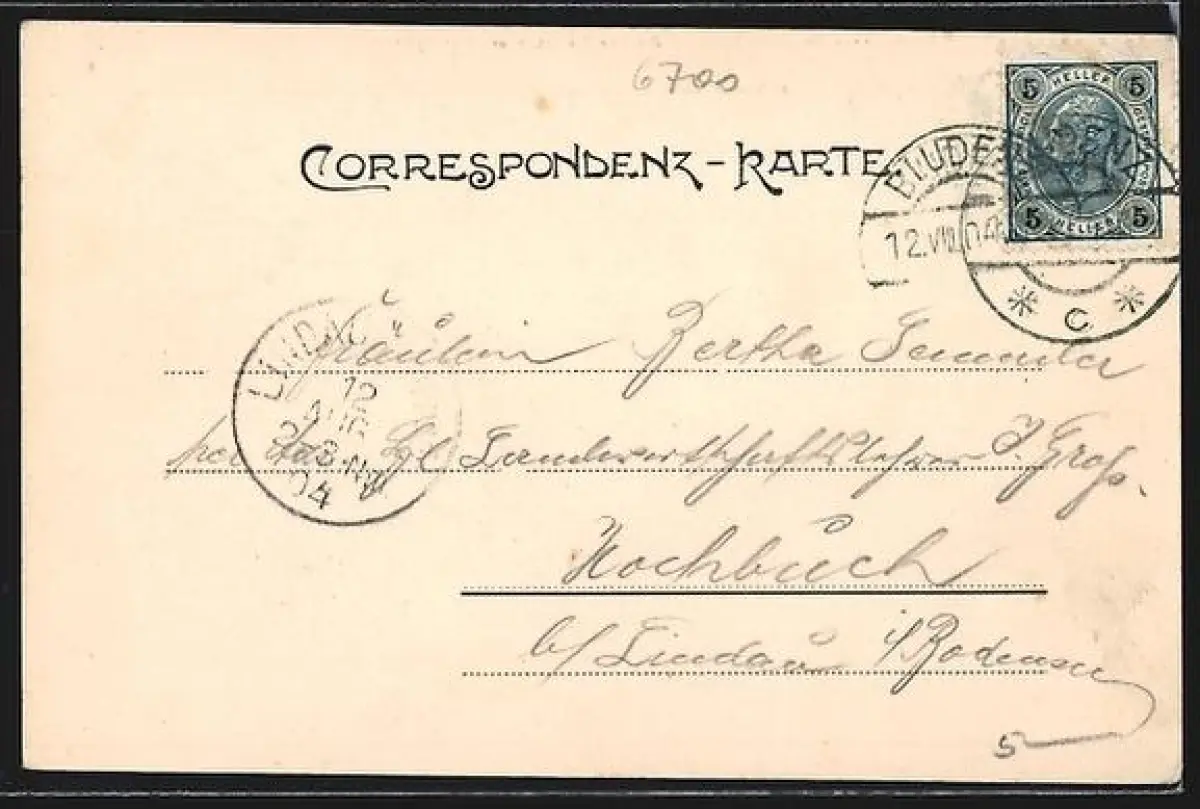 6700
5 HELLER 5
5 HELLER 5
CORRESPONDENZ-KARTE
BLUDENZ
12.VIII.04
* C *
LINDAU
12
AUG
04
Fräulein Bertha
bei Kgl. Landwirthschaftslehrer J. Groß.
Hochbuch
b/ Lindau i/ Bodensee
5